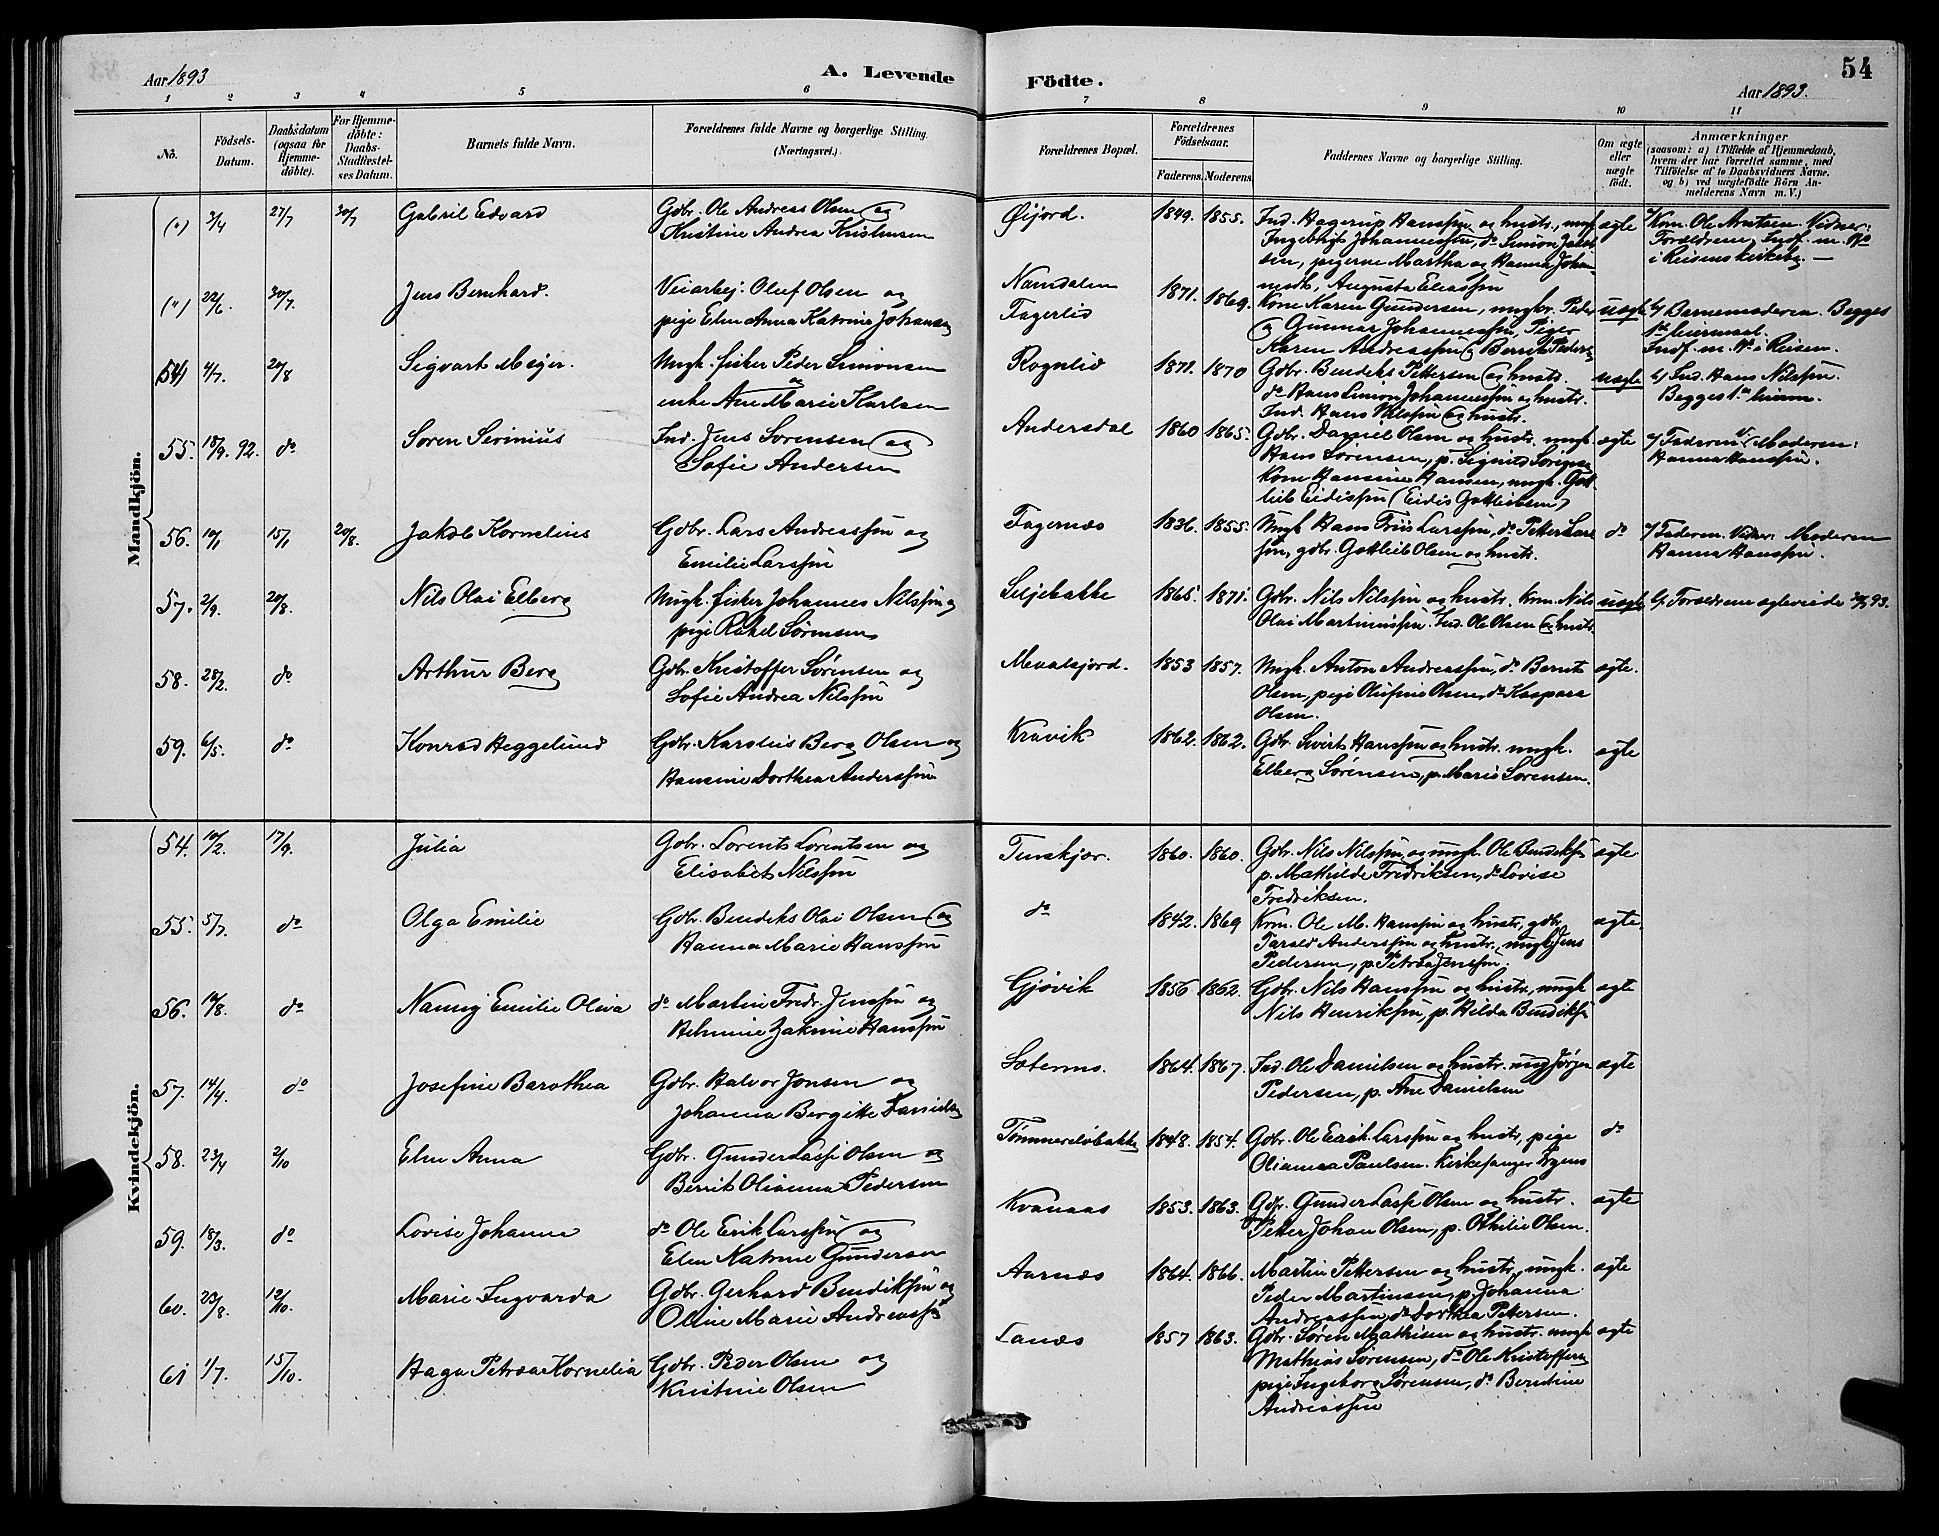 Aar 1893
A. Levende
Födte.
Aar 1893.
54
1 2 3 4 5 6 7 8 9 10 11
No.
Födsels-Datum.
Daabsdatum (ogsaa for Hjemme-döbte).
For Hjemme-döbte: Daabs-Stadfæstel-ses Datum.
Barnets fulde Navn.
Forældrenes fulde Navne og borgerlige Stilling.
(Næringsvei.)
Forældrenes Bopæl.
Forældrenes Födselsaar.
Faderens. Moderens.
Faddernes Navne og borgerlige Stilling.
Om ægte eller uægte födt.
Anmærkninger
(saasom: a) i Tilfælde af Hjemmedaab,
hvem der har forrettet samme, med
Tilföielse af to Daabsvidners Navne.
og b) ved uægtefödte Börn An-
melderens Navn m. V.)
Mandkjön.
(") 3/4 27/7 30/7 Gabriel Edvard
Gdbr. Ole Andreas Olsen og
Kristine Andrea Kristensen
Øijord. 1849. 1855.
Ind. Hagerup Hanssen og hustr., ungk.
Ingebrigt Johannessen, do Simon
sen, pigerne Martha og Hanna Johan
ægte
Kom. Ole Arntsen. Vidner:
Forældrene, Indf. m. No
i Reisens kirkebog.
(") 22/6 30/7 Jens Bernhard.
Veiarbej. Oluf Olsen og
pige Elen Anna Katrine Johansen
Namdalen
Fagerlid
1871. 1869.
Augusta Eliassen
Kone Karen Gundersen, ungkr. Peder
og Gunnar Johannessen, Piger
Karen Andreassen og Berit Peders
uægte
b/ Barnemoderen. Begges
1ste leiermaal.
Indf. m. No i Reisen.
54) 4/7. 20/8 Sigvart Meyer.
Ungk. fisker Peder Simonsen
og
enke Ane Marie Karlsen
Rognlid 1871. 1870
Gdbr. Bendiks Pettersen og hustr.
do Hans Simon Johannessen og hustr.
Ind. Hans Nilssen og hustr.
uægte
b/ Ind. Hans Nilssen.
Begges 1ste
55. 18/9. 92. do Soren Serinius
Ind. Jens Sorensen og
Sofie Andersen
Andersdal 1860 1865.
Gdbr. Daniel Olsen og hustr. ungk.
Hans Sorensen, p. Sigrid
Kone Hansine Hansen, ungk. Got
lieb Eidissen (Eidis Gottliebsen)
ægte
a/ Faderen v/ Moderen:
Hanna Hanssen.
56. 10/1 15/1 20/8. Jakob Kornelius
Gdbr. Lars Andreassen og
Emilie Larssen
Fagernæs 1836. 1855.
Ungk Hans Friis Larssen, do Petter Lars
sen, gdbr. Gottlieb Olsen og hustr.
do
a/ Faderen. Vidner: Moderen
Hanna Hanssen.
57. 2/9. 20/8. Nils Olai Elberg
Ungk. fisker Johannes Nilssen og
pige Rakel Sørensen
Seljebakke 1865 1871.
Gdbr. Nils Nilssen og hustr. Kom. Nils
Olai Martinussen. Ind. Ole Olsen og hustr.
uægte
b/ Forældrene ægteviede 93.
58. 28/2. do Arthur Berg
Gdbr. Kristoffer Sørensen og
Sofie Andrea Nilssen
Mevatsjord. 1853 1857.
Ungk. Anton Andreassen, do Bernt
Olsen, pige Olufine Olsen, do Kaspara
Olsen.
ægte.
59. 6/5. do Konrad Heggelund
Gdbr. Karolius Berg Olsen og
Hansine Dorthea Anderssen
Kravik 1862. 1862.
Gdbr. Sivert Hanssen og hustr. ungk.
Elberg Sørensen, p. Marie Sorensen.
ægte
Kvindekjön.
54. 10/2. 17/9. Julia
Gdbr. Lorents Lorentsen og
Elisabet Nilssen
Tenskjær. 1860. 1860.
Gdbr. Nils Nilssen og ungk. Ole Bendikss
p. Mathilde Fredriksen, do Lovise
Fredriksen.
ægte
55. 5/7. do Olga Emilie
Gdbr. Bendiks Olai Olsen og
Hanna Marie Hanssen
do 1842. 1869
Kom. Ole M. Hanssen og hustr., gdbr.
Tarald Anderssen og hustr. ungk. Jens
Pedersen, p. Petrea Jenssen.
ægte.
56. 14/8. do Nanny Emilie Oliva
do Martin Fredr. Jenssen og
Helmine Zakrine Hanssen
Gjøvik 1856 1862.
Gdbr. Nils Hanssen og hustr., ungk
Nils Henrikssen, p. Hilda Bendikss
ægte
57. 14/4. do Josefine Barothea
Gdbr. Halvor Jonsen og
Johanna Bergitte Daniels
Soternes. 1864. 1867.
Ind. Ole Danielsen og hustr. ung Jørgen
Pedersen, p. Ane Danielsen
ægte
58. 23/4 2/10 Elen Anna
Gdbr. Gunder Lasse Olsen og
Berit Olianna Pedersen
Tømmerelvbakke 1848. 1854.
Gdbr. Ole Erik Larssen og hustr, pige
Olianna Paulsen. Kirkesanger
do
59. 18/3. do Lovise Johanna
do Ole Erik Larssen og
Elen Katrine Gundersen
Kvanaas 1853. 1863.
Gdbr. Gunder Lasse Olsen og hustr.
Petter Johan Olsen, p. Othilie Olsen.
ægte
60. 23/8. 12/10. Marie Ingvarda
Gdbr. Gerhard Bendikssen og
Oline Marie Andreassen
Aarnæs 1864. 1866.
Martin Pettersen og hustr, ungk.
Peder Martinsen, p. Johanna
Andreassen, do Dorthea Pettersen.
ægte
61 1/7. 15/10. Haga Petrea Kornelia
Gdbr. Peder Olsen og
Kristine Olsen
Lanæs 1857 1863.
Gdbr. Søren Mathisen og hustr. ungk
Mathias Sørensen, do Ole Kristoffers
pige Ingeborg Sørensen, do Berntine
Andreassen
ægte